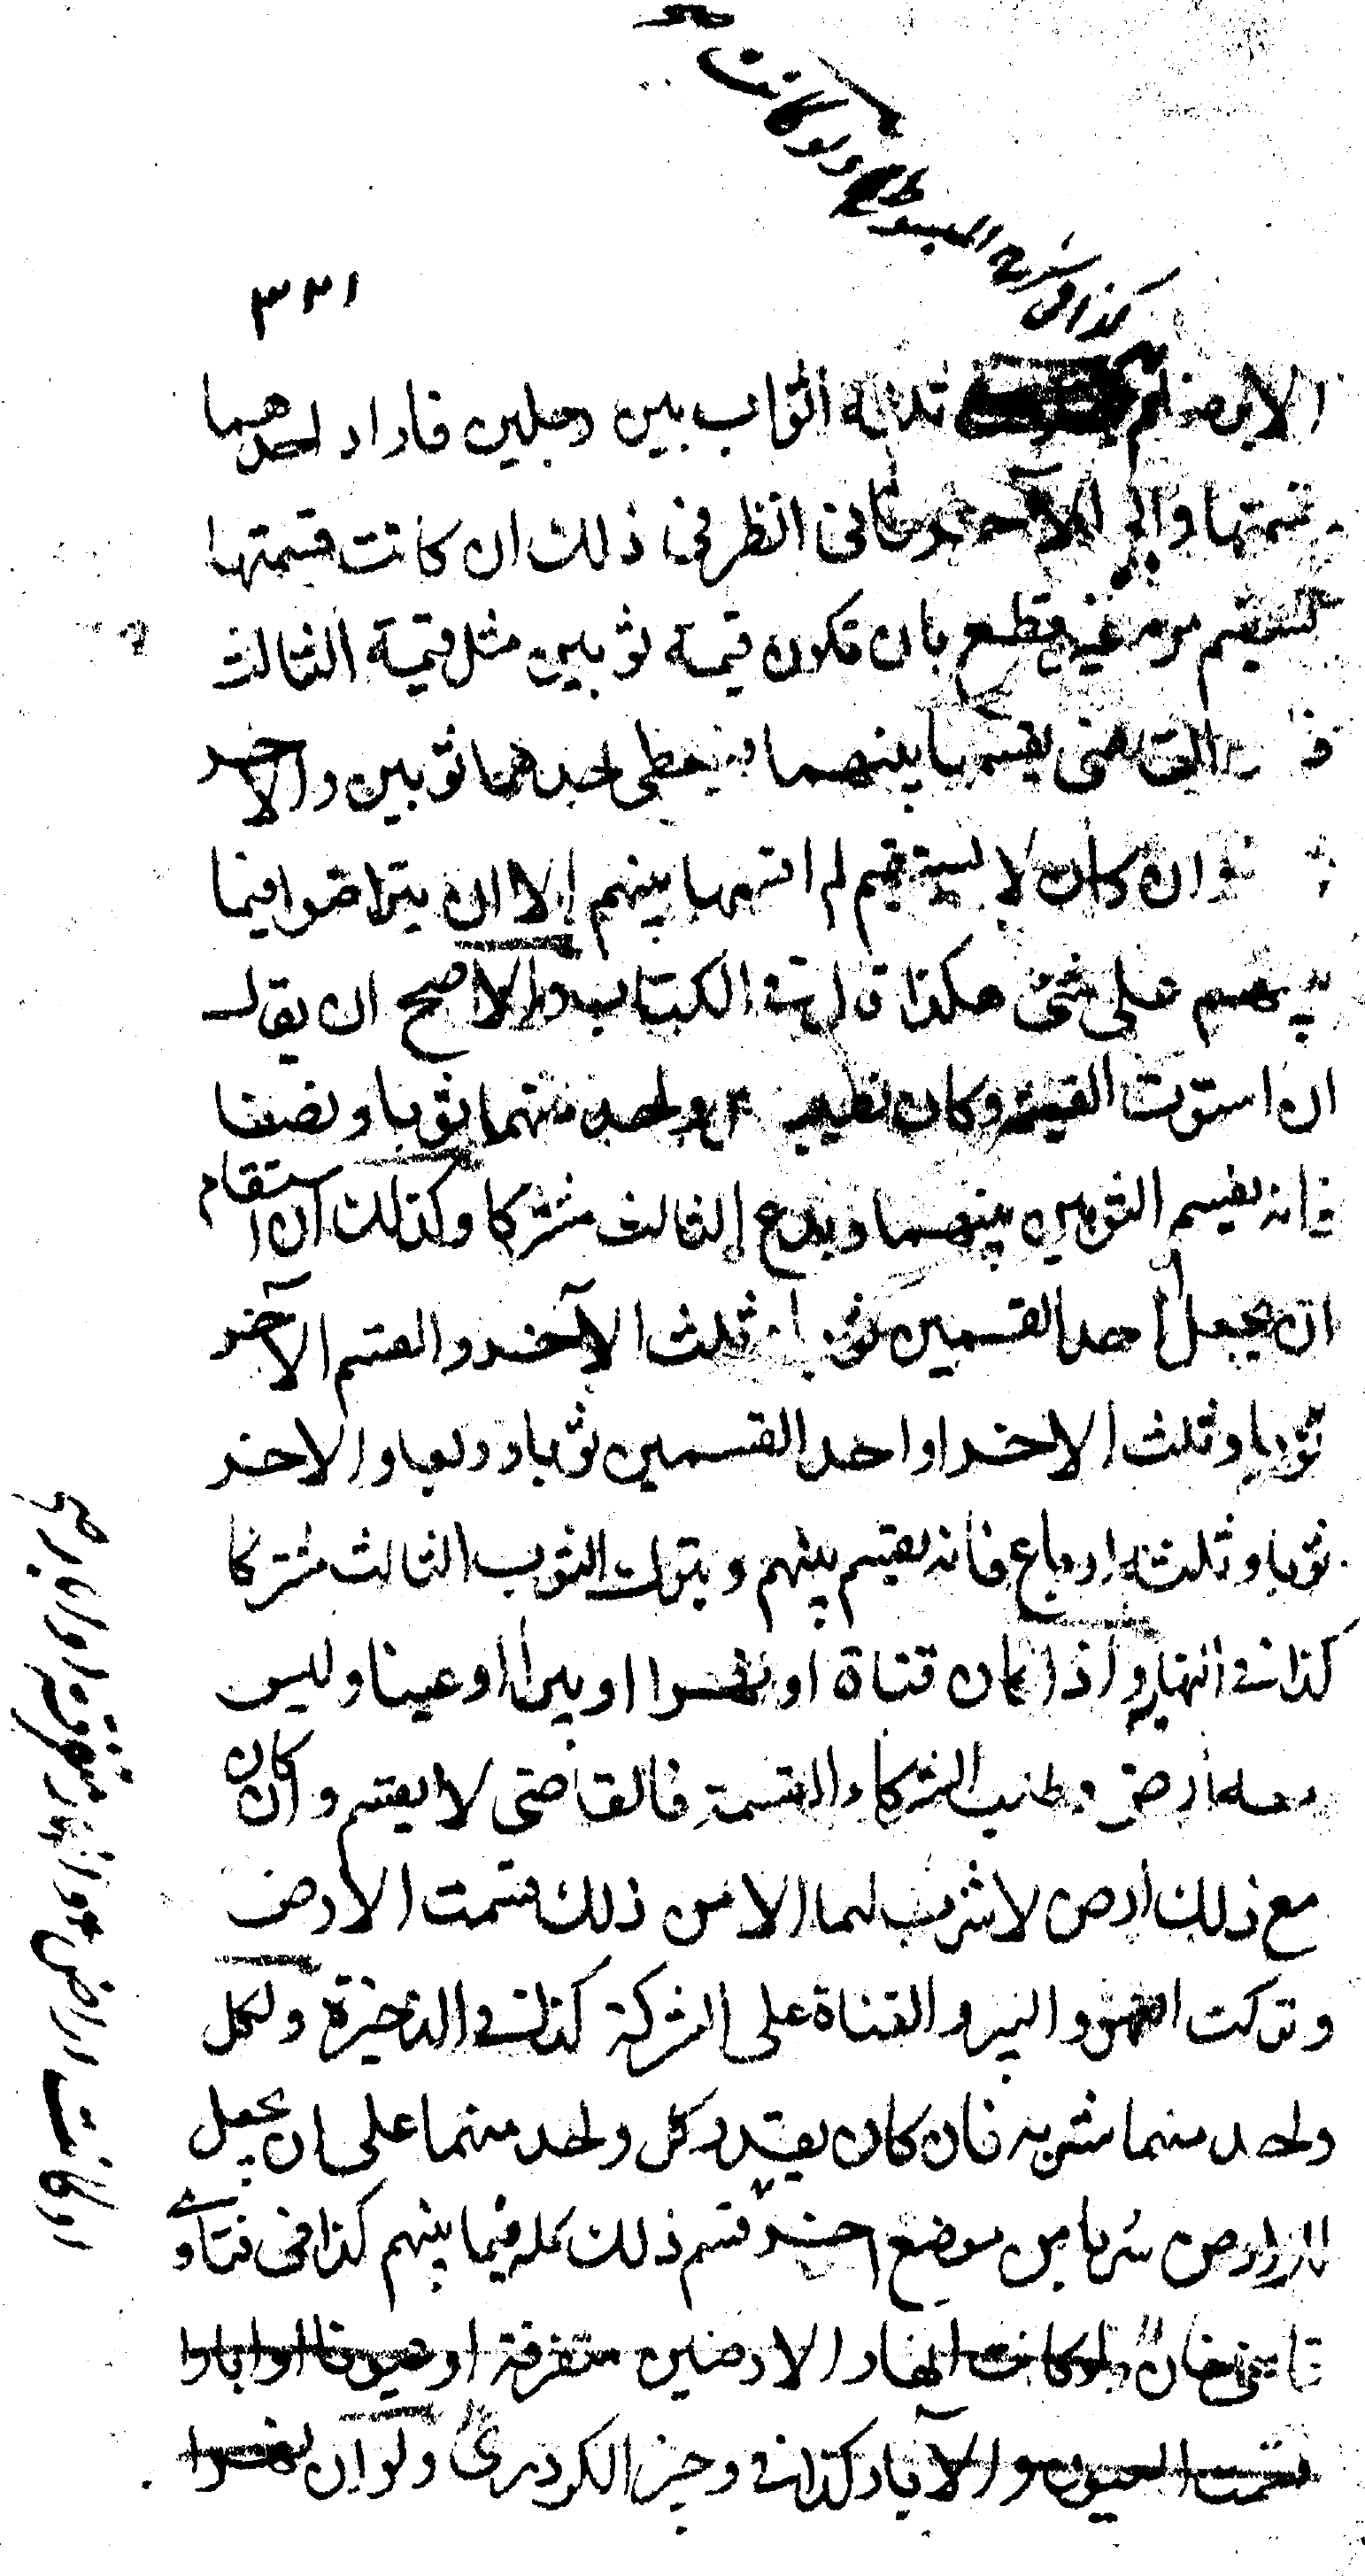 كذا في شرح المبسوط ولو كانت
٣٣١
ثلاثة اثواب بين رجلين فاراد احدهما
قسمتها وابى الآخر فانى انظر فى ذلك ان كانت قسمتها
تستقيم من غير قطع بان تكون قيمة ثوبين مثل قيمة الثالث
القاضى يقسمها بينهما فيعطى احدهما ثوبين والآخر
وان كان لا يستقيم لم اقسمها بينهم الا ان يتراضوا فيما
بينهم على شئ هكذا قال في الكتاب والاصح ان يقال
ان استوت القيمة وكان نصيب كل واحد منهما ثوبا ونصفا
فانه يقسم الثوبين بينهما ويدع الثالث مشتركا وكذلك ان استقام
ان يجعل احد القسمين ثوبا وثلث الآخر والقسم الآخر
ثوبا وثلث الاخر او احد القسمين ثوبا وربعا والاخر
ثوبا وثلثة ارباع فانه يقسم بينهم ويترك الثوب الثالث مشتركا
كذا في النهاية واذا كان قناة او نهرا او بيرا او عينا وليس
معه ارض وطلب الشركاء القسمة فالقاضى لا يقسم وان كان
مع ذلك ارض لا شرب لها الا من ذلك قسمت الارض
وتركت النهر والبير والقناة على الشركة كذا في الذخيرة ولكل
واحد منهما شربه فان كان يقدر كل واحد منهما على ان يجعل
لارضه شربا من موضع اخر قسم ذلك كله فيما بينهم كذا فى فتاوے
قاضى خان ولو كانت انهار الارضين متفرقة او عيونا او ابارا
قسمت العيون والآبار كذا في وجيز الكردرى ولو ان نهرا